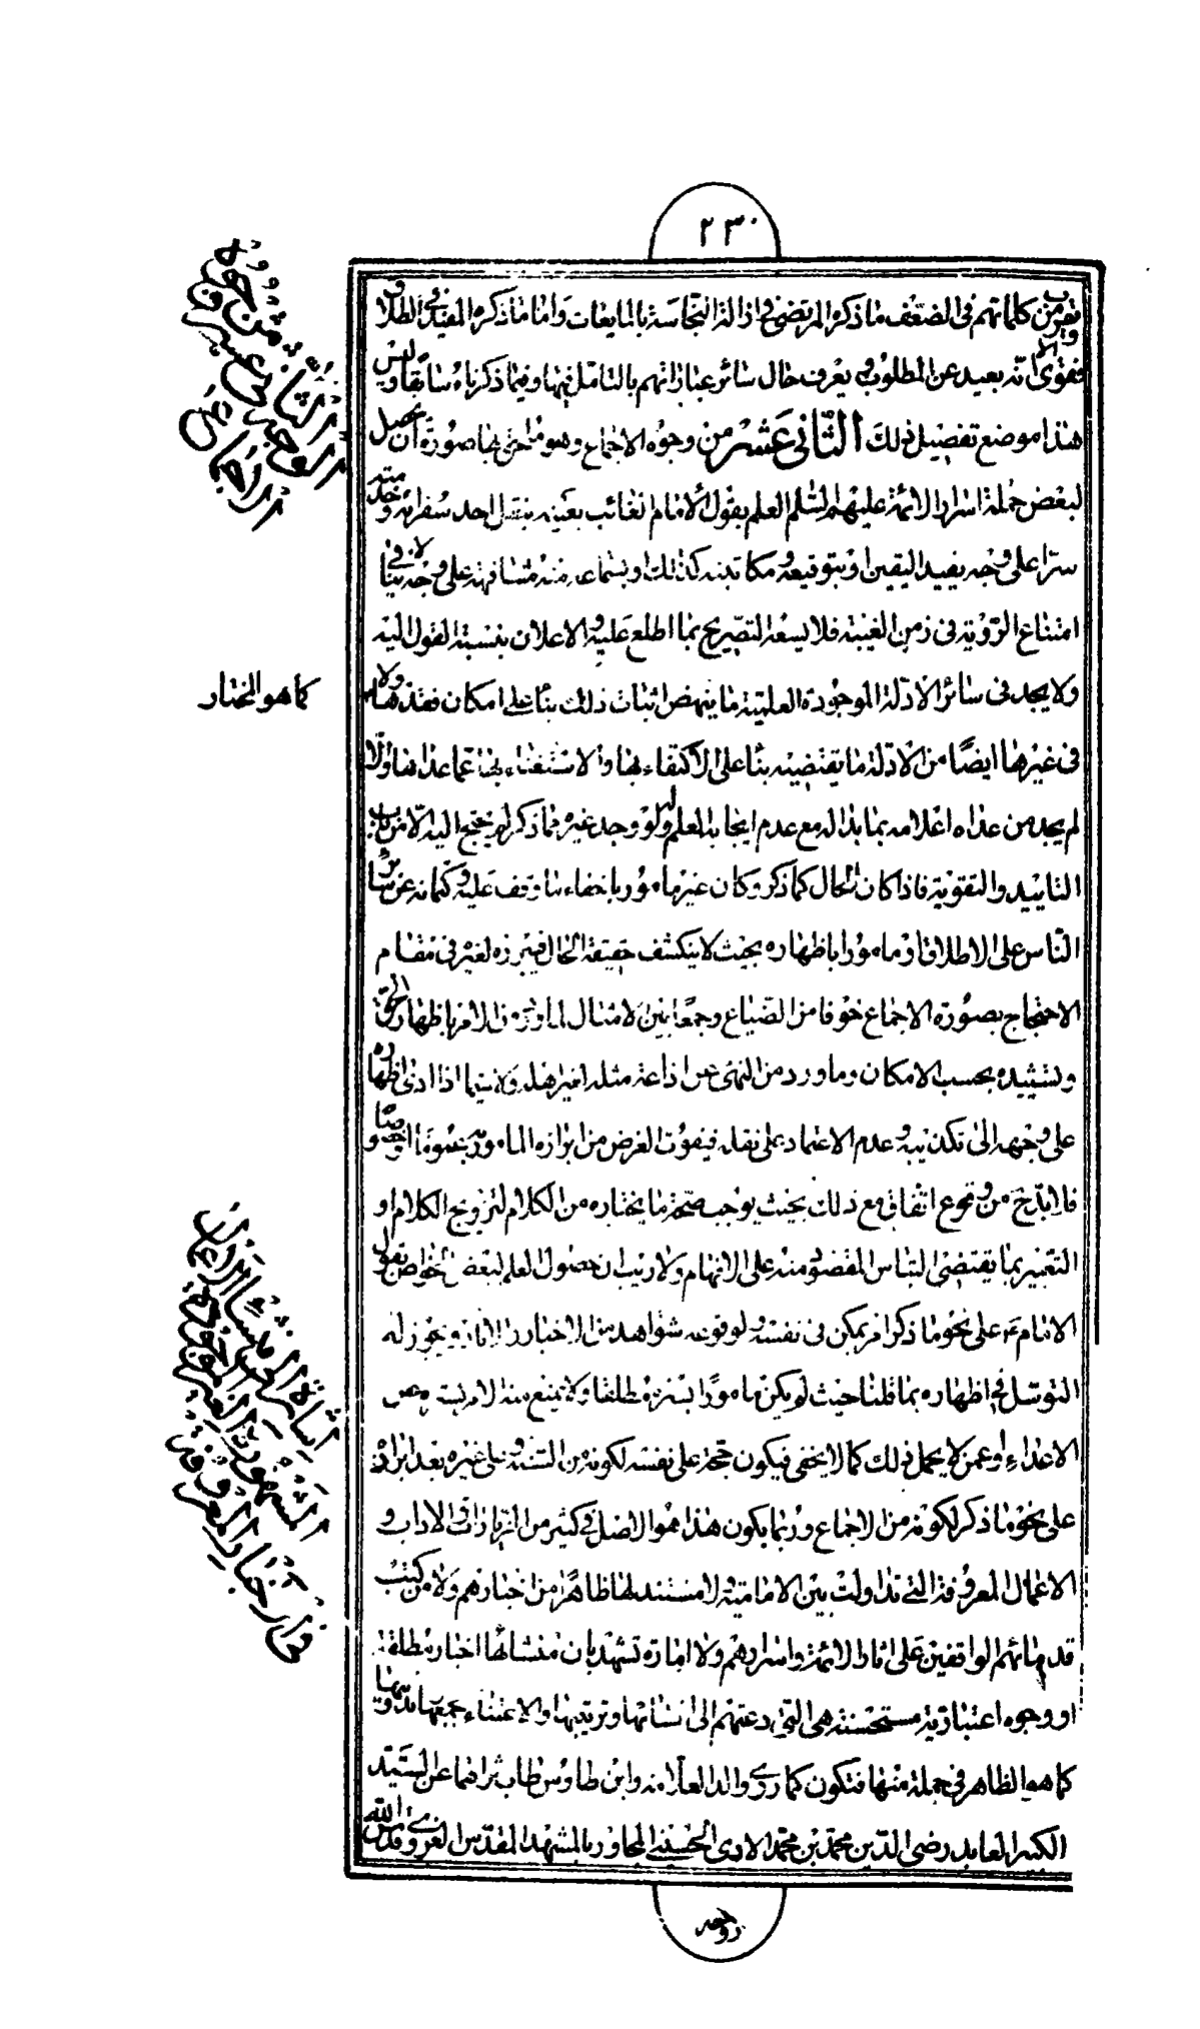 ٢٣٠
ويقرب من كلماتهم في الضعف ما ذكره المرتضى في ازالة النجاسة بالمايعات واما ما ذكره المفيد في الطلاق
ففوى الا انه بعيد عن المطلوب يعرف حال سائر عباراتهم بالتامل فيها وفيما ذكرناه سابقا وليس
هذا موضع تفصيل ذلك الثاني عشر من وجوه الاجماع وهو ملحق بها صورة ان يحصل
لبعض حملة اسرار الائمة عليهم السلم العلم بقول الامام الغائب بعينه بنقل احد سفرائه وخدمته
سرا على وجه يفيد اليقين او بتوقيعه ومكاتبته كذلك او بسماعه منه مشافهة على وجه لا ينافي
امتناع الرؤية في زمن الغيبة فلا يسعه التصريح بما اطلع عليه والاعلان بنسبة القول اليه
ولا يجد في سائر الادلة الموجودة العلمية ما ينهض اثبات ذلك بناء على امكان فقدها ولا
كما هو المختار
في غيرها ايضا من الادلة ما يقتضيه بناء على الاكتفاء بها والاستغناء بها عما عداها والا
لم يجد من عداه اعلامه بما بدا له مع عدم ايجابه العلم له ولو وجد غيره مما ذكر لم يحتج اليه الا من باب
التاييد والتقوية فاذا كان الحال كما ذكر وكان غير مامور باخفاء ما وقف عليه وكتمانه عن سائر
الناس على الاطلاق او مامورا باظهاره بحيث لا ينكشف حقيقة الحال فيبرزه لغيره في مقام
الاحتجاج بصورة الاجماع خوفا من الضياع وجمعا بين لامتثال الامر باظهار الحق
وتشييده بحسب الامكان وما ورد من النهى عن اذاعة مثله لغير اهله ولا سيما اذا ادى اظهاره
على وجهه الى تكذيبه وعدم الاعتماد على نقله فيفوت الغرض من ابرازه المامور به عموما او خصوصا
من وقوع اتفاق مع ذلك بحيث يوجب صحة ما يختاره من الكلام لترويج الكلام او
التعبير بما يقتضى التباس المقصود منه على الافهام ولا ريب ان حصول العلم لبعض الخواص بقول
الامام ع على نحو ما ذكر امر ممكن في نفسه ولوقوعه شواهد من الاخبار ويجوز له
التوسل في اظهاره بما قلنا حيث لم يكن مامورا بستره مطلقا ولا يمنع منه
الاعداء او عمن لا يحمل ذلك كما لا يخفى فيكون حجة على نفسه لكونه من السنة وعلى غيره بعد ابرازه
على نحو ما ذكر لكونه من الاجماع وربما يكون هذا هو الاصل في كثير من الزيارات والاداب و
الاعمال المعروفة التي تداولت بين الامامية ولا مستند لها ظاهرا من اخبارهم ولا من كتب
قدمائهم الواقفين على اثار الائمة واسرارهم ولا امارة تشهد بان منشأها اخبار مطلقة
او وجوه اعتبارية مستحسنة هي التي دعتهم الى انشائها وترتيبها والاعتناء بجمعها وتدوينها
كما هو الظاهر في جملة منها فتكون كما روى والد العلامة وابن طاوس طاب ثراهما عن السيد
الكبير العابد رضى الدين محمد بن محمد الاوى الحسيني المجاور بالمشهد المقدس الغروي قدس الله
روحه
الثاني عشر من وجوه
الاجماع
اشارة الى منشأ
المشهورة